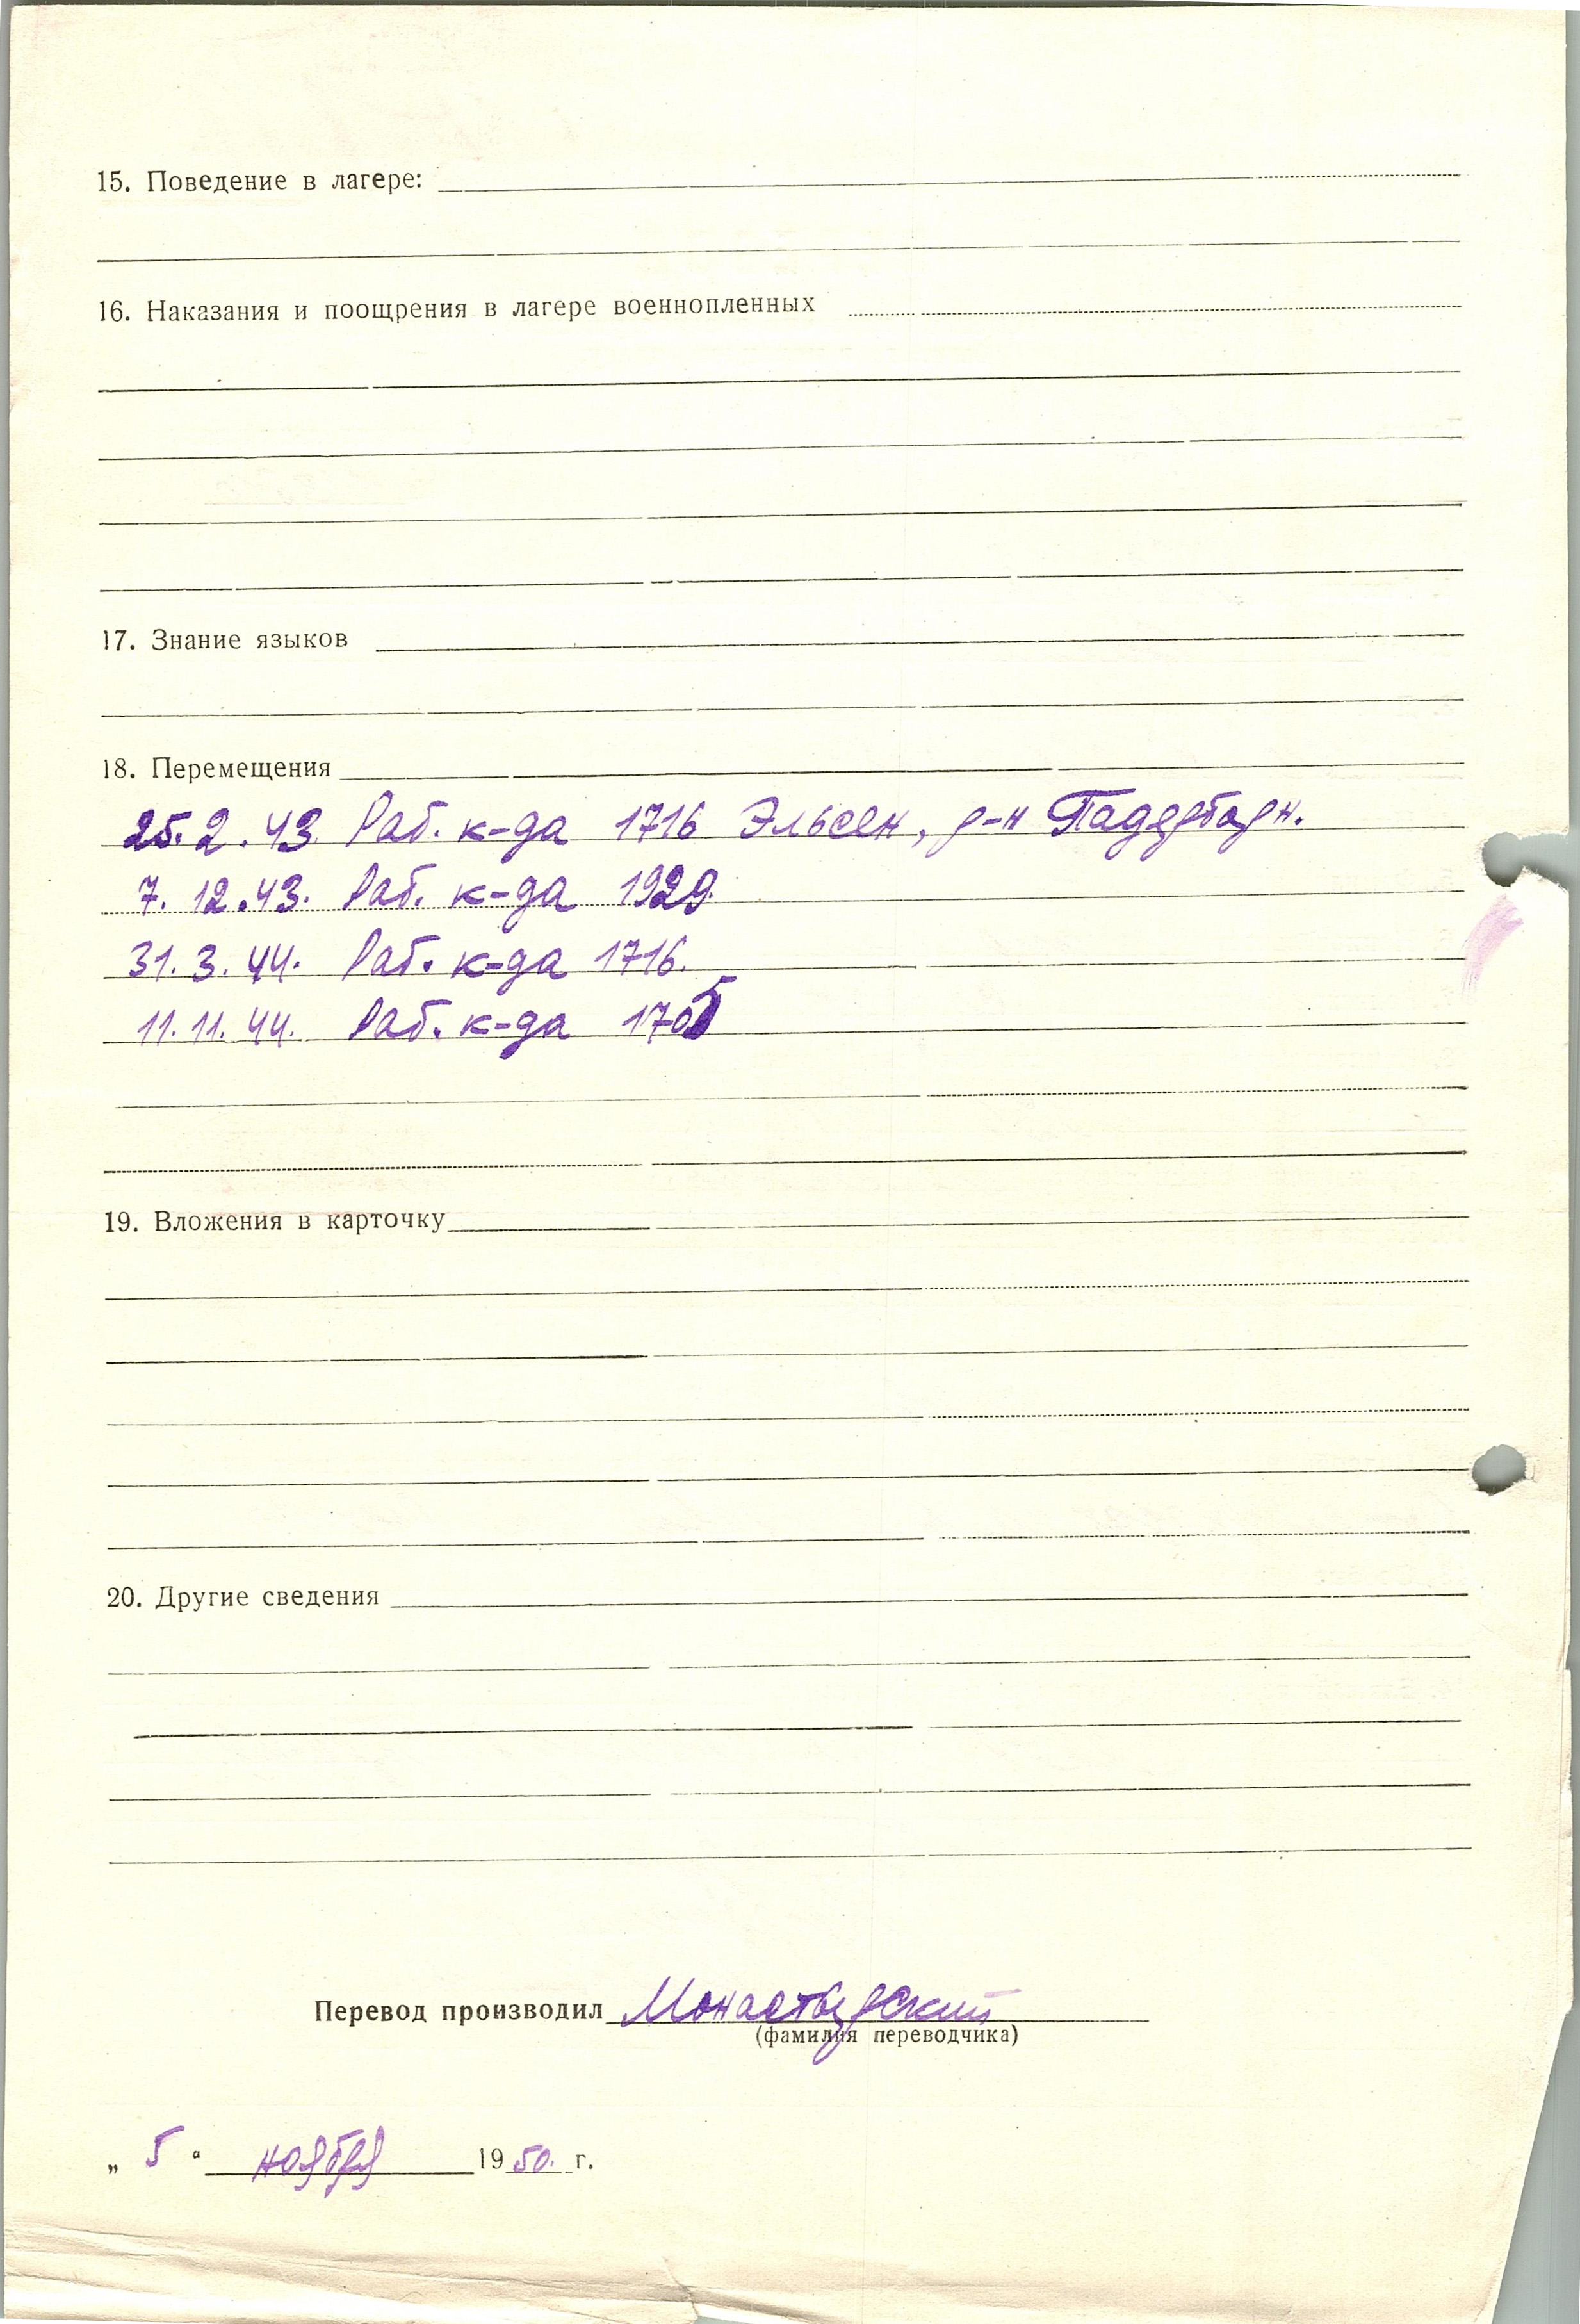 15. Поведение в лагере:
16. Наказания и поощрения в лагере военнопленных
17. Знание языков
18. Перемещения
25.2.43 Раб. к-да 1716 Эльсен, р-н Падерборн.
7.12.43. Раб. к-да 1929.
31.3.44. Раб. к-да 1716.
11.11.44. Раб. к-да 1705
19. Вложения в карточку
20. Другие сведения
Перевод производил Монастырский
(фамилия переводчика)
„ 5 “ ноября 1950. г.